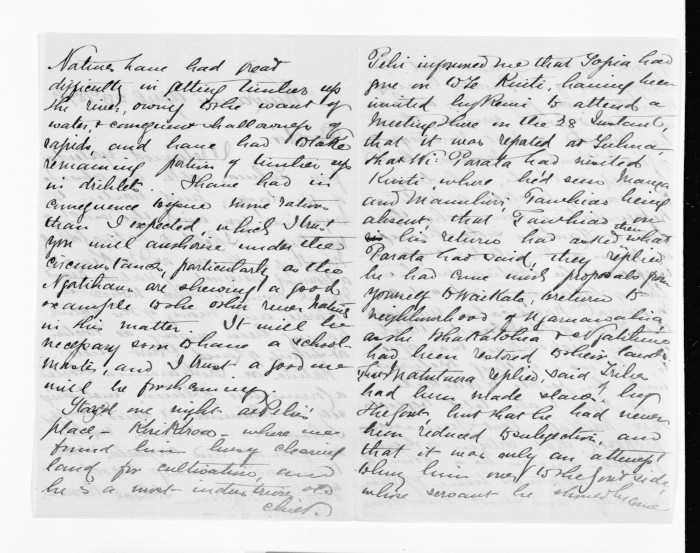 Natives have had great
difficulty in getting timber up
the river, owing to the want of
water, & consequent shallowness of
rapids, and have had to take
remaining portion of timber up
in driblets. I have had in
consequence to give more rations
than I expected, which I trust
you will authorise under the
circumstances, particularly as the
Ngatihau are shewing a good
example to the other river Natives
in this matter. It will be
necessary soon to have a school-
master, and I trust a good one
will be forthcoming
Stayed one night at Pehi's
place - where we
found him busy clearing
land for cultivation, and
he is a most industrious old
chief.
Pehi informed me that Topia had
gone on to Te Kuiti, having been
invited by Rewi to attend a
Meeting there on the 28 Instant,
that it was reported at Tuhua
that Wi Parata had visited
Kuiti where he'd seen Manga
and Manuhiri, Tawhiao being
absent, that Tawhiao on
his return had asked them what
Parata had said, they replied
he had come with proposals from
yourself to Waikato, to return to
neighbourhood of Ngaruawahia,
as the Whakatohea &
had been restored to their lands
replied, said Tribes
had been made slaves of by
the Govt, but that he had never
been reduced to subjection, and
that it was only an attempt
to bring him over to the Govt side,
whose servant he should become